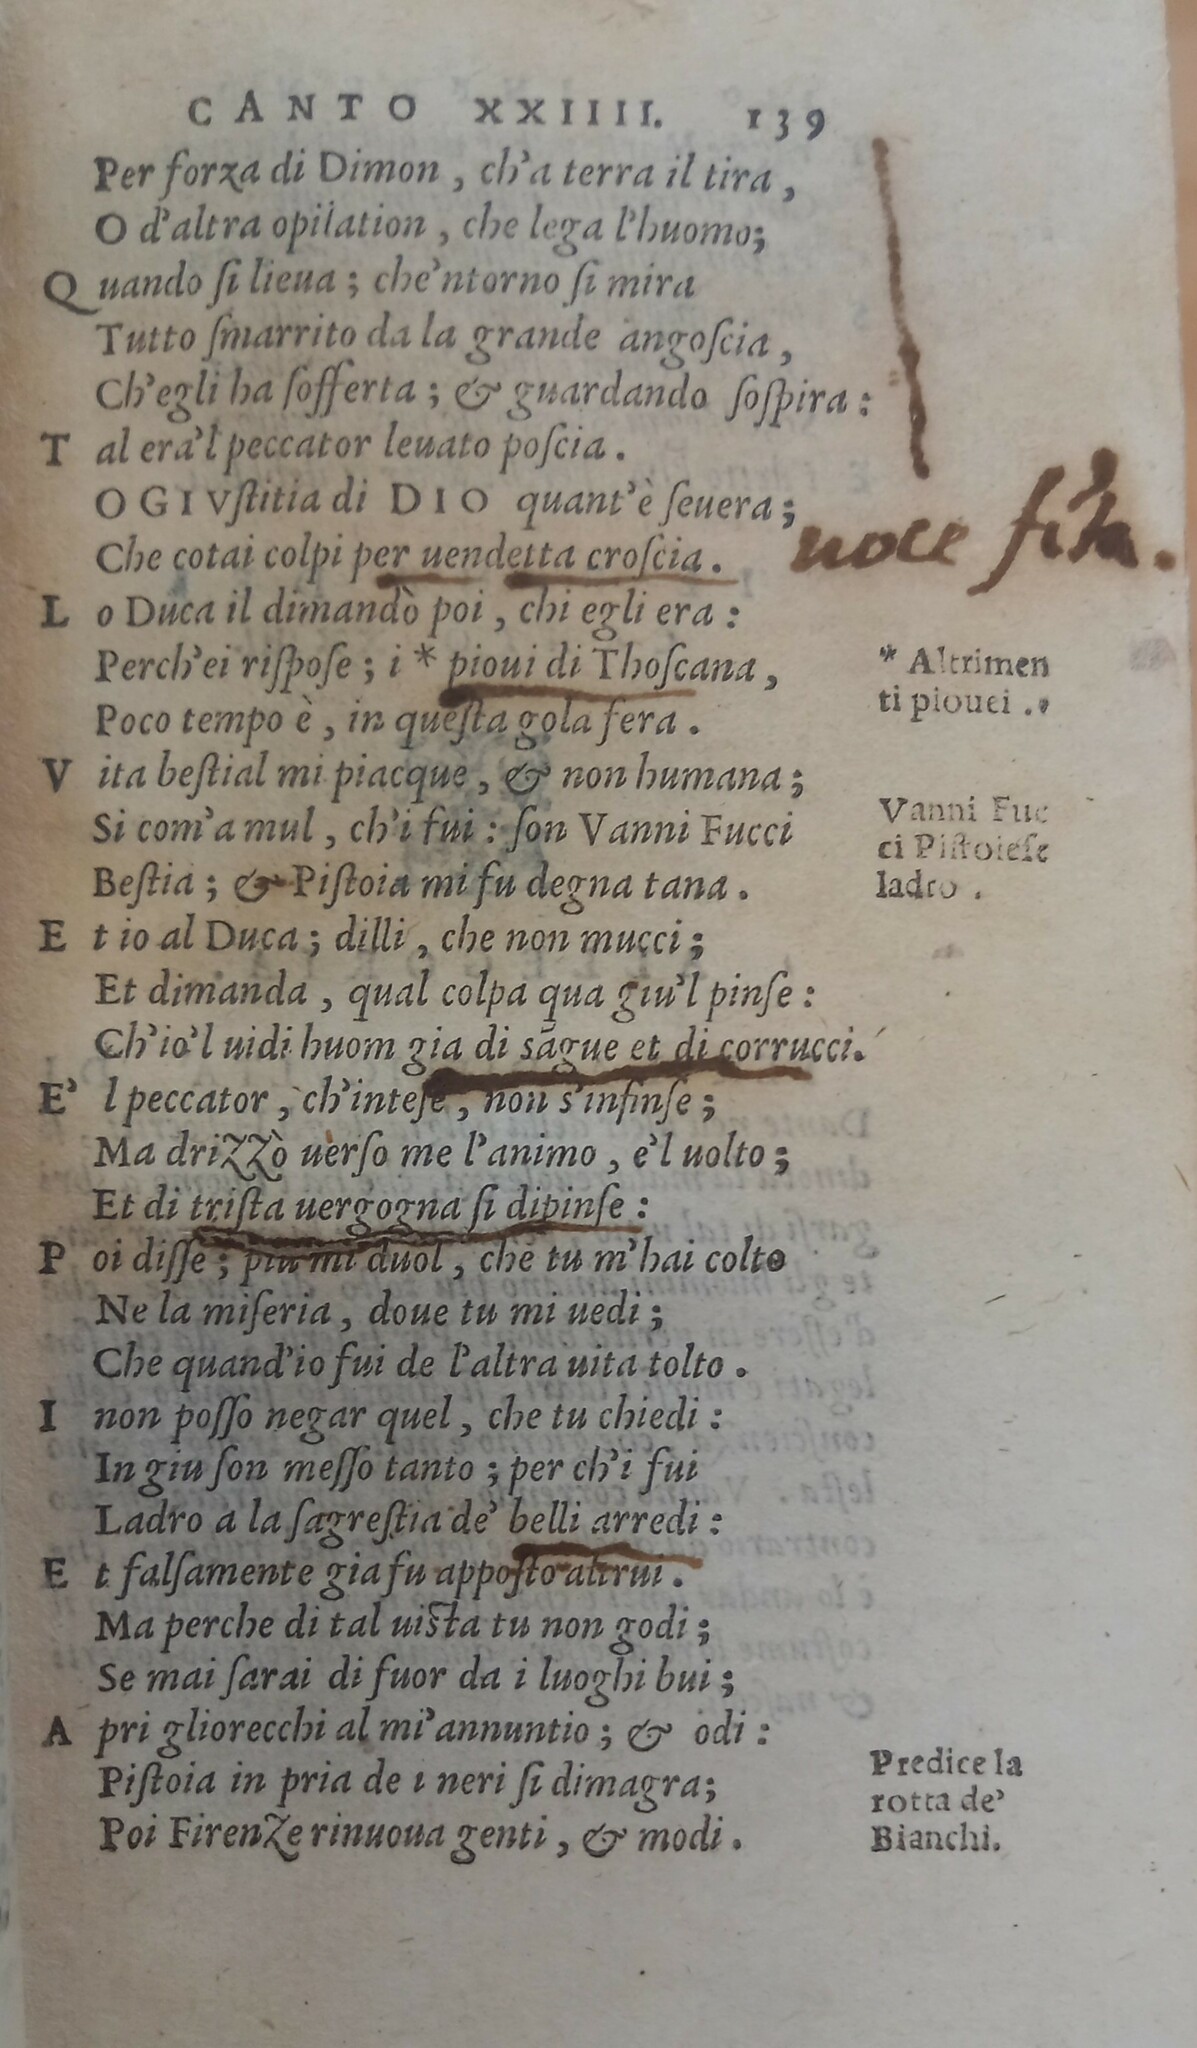 CANTO XXIIII. 139
Per forza di Dimon, ch'a terra il tira,
O d'altra opilation, che lega l'huomo;
Quando ſi lieua; che'ntorno ſi mira
Tutto ſmarrito da la grande angoſcia,
Ch'egli ha ſofferta; & guardando ſoſpira:
Tal era'l peccator leuato poſcia.
O GIVſtitia di DIO quant'è ſeuera;
Che cotai colpi per uendetta croſcia.
noce
Lo Duca il dimandò poi, chi egli era:
Perch'ei riſpoſe; i * pioui di Thoſcana,
* Altrimen
ti piouei.
Poco tempo è, in queſta gola fera.
Vita beſtial mi piacque, & non humana;
Si com'a mul, ch'i fui: ſon Vanni Fucci
Vanni Fuc
ci Piſtoieſe
ladro.
Beſtia; & Piſtoia mi fu degna tana.
Et io al Duca; dilli, che non mucci;
Et dimanda, qual colpa qua giu'l pinſe:
Ch'io'l uidi huom gia di sāgue et di corrucci.
E'l peccator, ch'inteſe, non s'infinſe;
Ma drizzò uerſo me l'animo, e'l uolto;
Et di triſta uergogna ſi dipinſe:
Poi diſſe; piu mi duol, che tu m'hai colto
Ne la miſeria, doue tu mi uedi;
Che quand'io fui de l'altra uita tolto.
I non poſſo negar quel, che tu chiedi:
In giu ſon meſſo tanto; per ch'i fui
Ladro a la ſagreſtia de' belli arredi:
Et falſamente gia fu appoſto altrui.
Ma perche di tal uiſta tu non godi;
Se mai ſarai di fuor da i luoghi bui;
Apri gliorecchi al mi'annuntio; & odi:
Piſtoia in pria de i neri ſi dimagra;
Poi Firenze rinuoua genti, & modi.
Predice la
rotta de'
Bianchi.